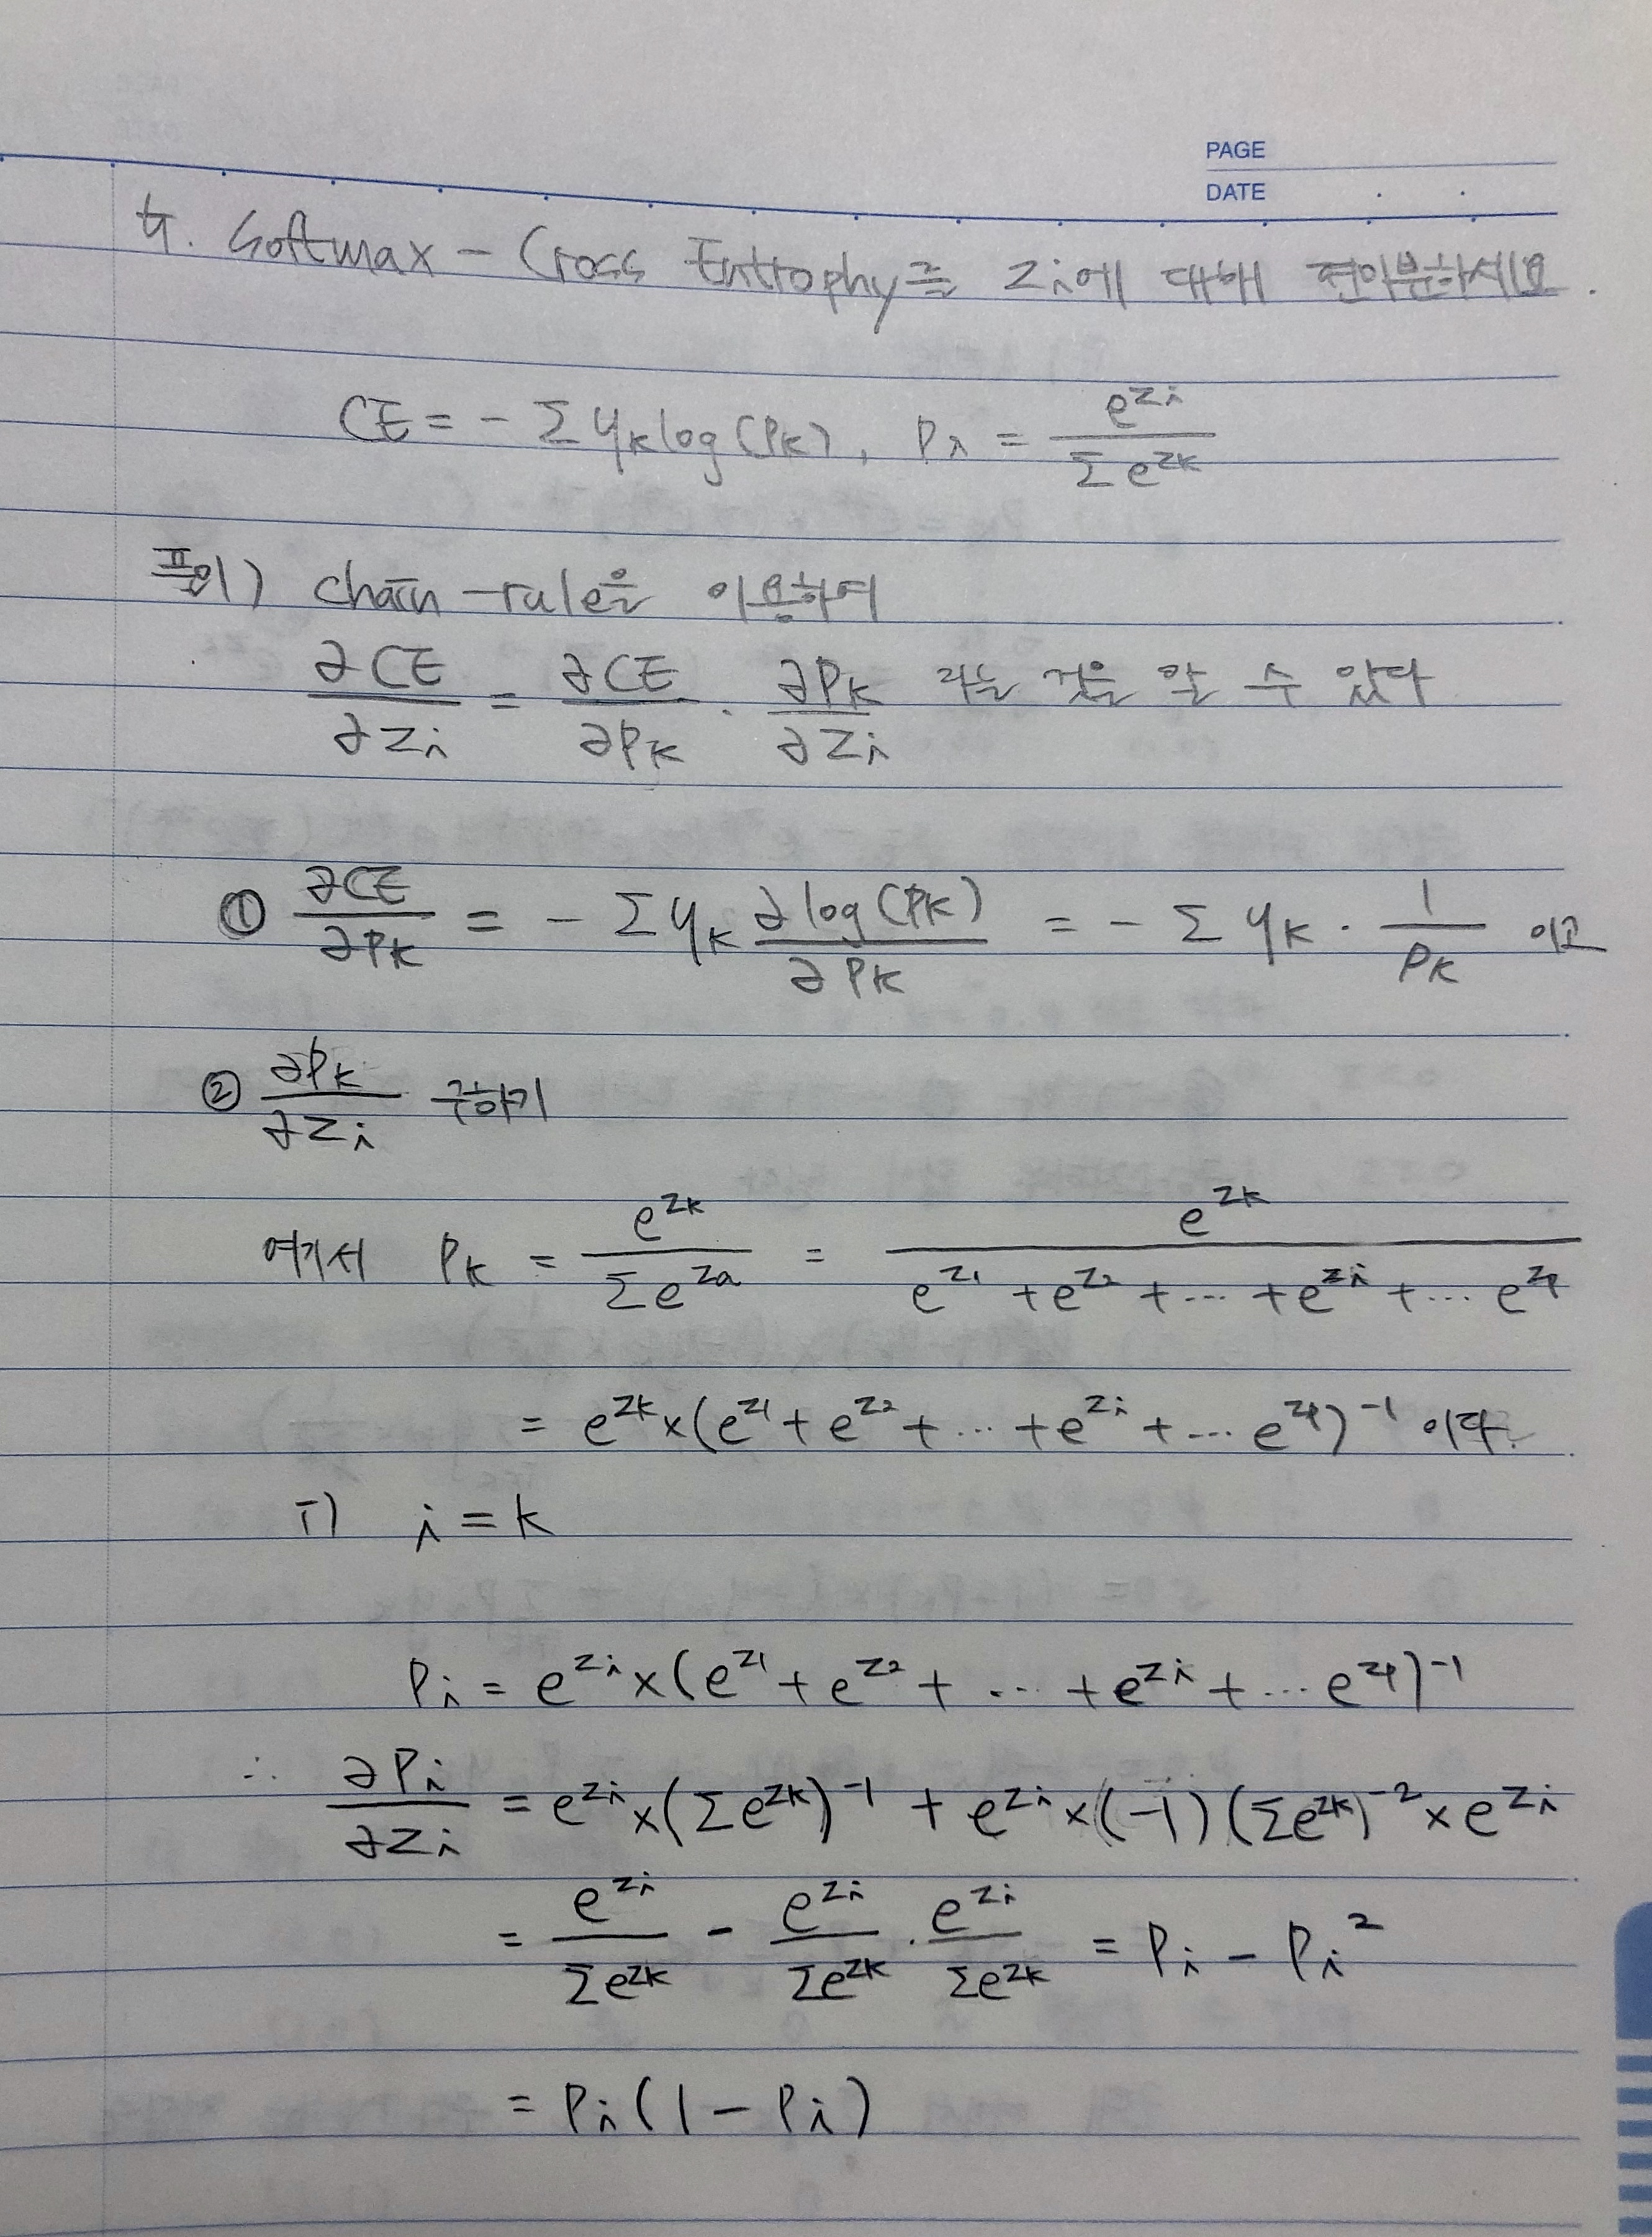 PAGE
DATE
4. Softmax - Cross Entrophy를 Zi에 대해 편미분하세요.
CE = - Σ yk log(Pk), Pi = e^zi / Σ e^zk
풀이) chain-rule을 이용하여
∂CE/∂Zi = ∂CE/∂Pk · ∂Pk/∂Zi 라는 것을 알 수 있다
① ∂CE/∂Pk = - Σ yk ∂log(Pk)/∂Pk = - Σ yk · 1/Pk 이고
② ∂Pk/∂Zi 구하기
여기서 Pk = e^zk / Σe^za = e^zk / e^z1 + e^z2 + ... + e^zi + ... e^zn
= e^zk × (e^z1 + e^z2 + ... + e^zi + ... e^zn)^-1 이다.
i) i = k
Pi = e^zi × (e^z1 + e^z2 + ... + e^zi + ... e^zn)^-1
∴ ∂Pi/∂Zi = e^zi × (Σe^zk)^-1 + e^zi × (-1) (Σe^zk)^-2 × e^zi
= e^zi/Σe^zk - e^zi/Σe^zk · e^zi/Σe^zk = Pi - Pi^2
= Pi(1 - Pi)